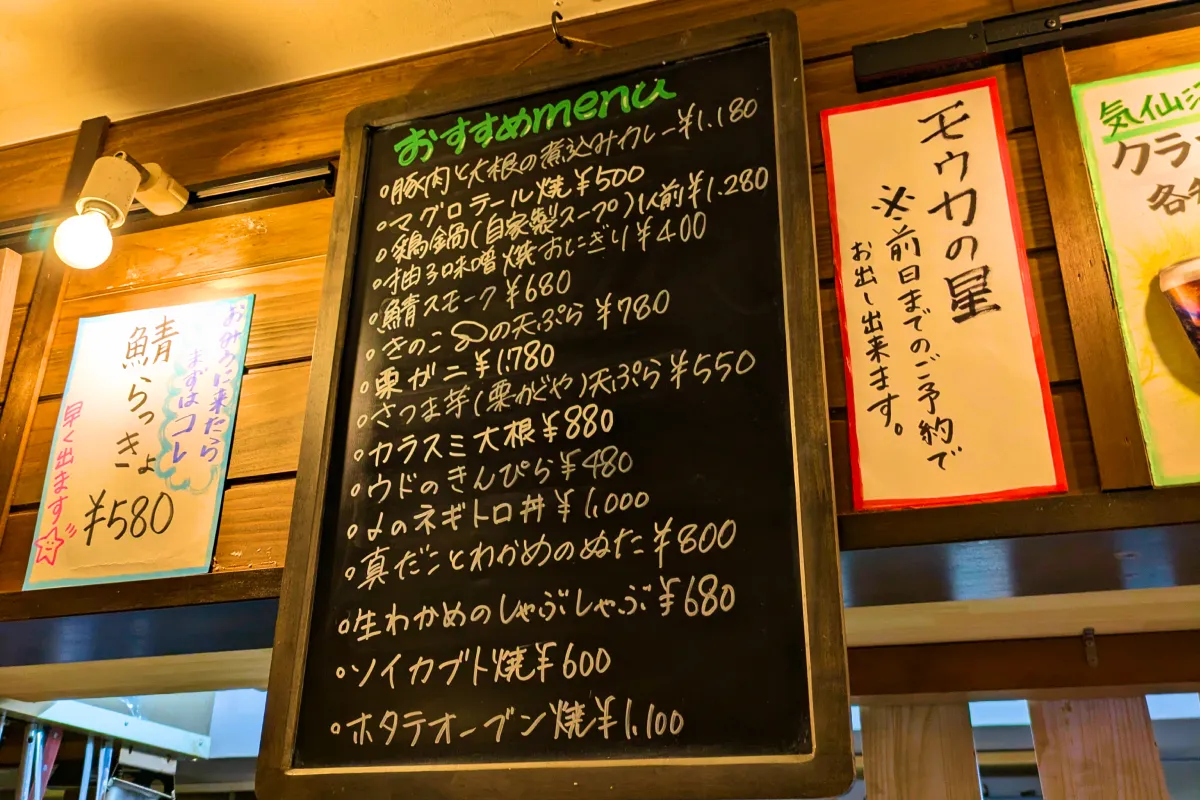 おすすめmenu
◦豚肉と大根の煮込みカレー¥1.180
◦マグロテール焼¥500
◦鶏鍋(自家製スープ)1人前¥1.280
◦柚子味噌焼おにぎり¥400
◦鯖スモーク¥680
◦きのこの天ぷら¥780
◦栗ガニ¥1.780
◦さつま芋(栗かぐや)天ぷら¥550
◦カラスミ大根¥880
◦ウドのきんぴら¥480
◦〆のネギトロ丼¥1,000
◦真だことわかめのぬた¥800
◦生わかめのしゃぶしゃぶ¥680
◦ソイカブト焼¥600
◦ホタテオーブン焼¥1,100
おみやに来たら
まずはコレ
鯖らっきょ
¥580
早く出ます
モウカの星
※前日までのご予約で
お出し出来ます。
気仙沼
クラ
各